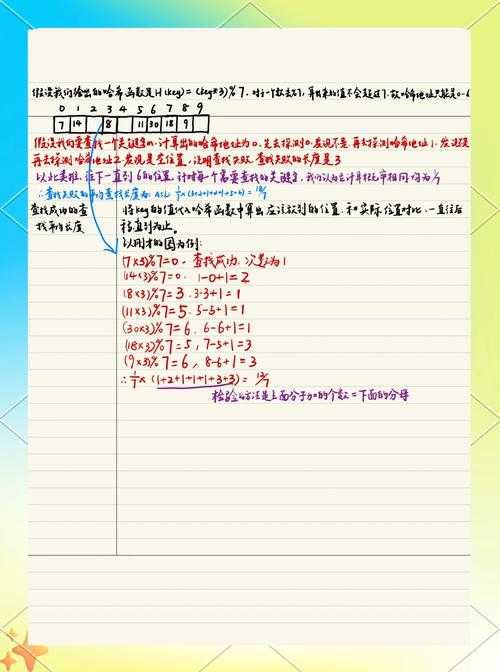 假设我们给出的哈希函数是H(key)=(key*3)%7.对于个数去7,算出来的值不会超过7.故哈希地址只能是0-6
0 1 2 3 4 5 6 7 8 9
7 14 8 11 30 18 9
假设我们要查找一个关键字m.计算出的哈希地址为0.先去探测0.发现不是.再去探测哈希地址1.发现不是
再去探测哈希地址2.发现是空位置,说明查找失败.查找失败的长度是3
以此类推.往下一直到6的位置.计对每个需要查找的关键字.我们认为它计算概率相同.均为1/7
∴查找失败的平均查找长度为:ASL
查找成功的查
找平均长度
将key的值代入哈希函数中算出应该放到的位置 和实际位置对比.一直往后
移直到为止.
以刚才的图为例:
(7×3)%7=0. 查找成功.次数为1
(14×3)%7=0. 1-0+1=2
(8×3)%7=3. 3-3+1=1
(11×3)%7=5. 5-5+1=1
(30×3)%7=6. 6-6+1=1
(18×3)%7=5, 7-5+1=3
(9×3)%7=6, 8-6+1=3
∴1/7×(1+2+1+1+1+3+3)=12/7
检验的方法是上面分子加的个数=下面的分母